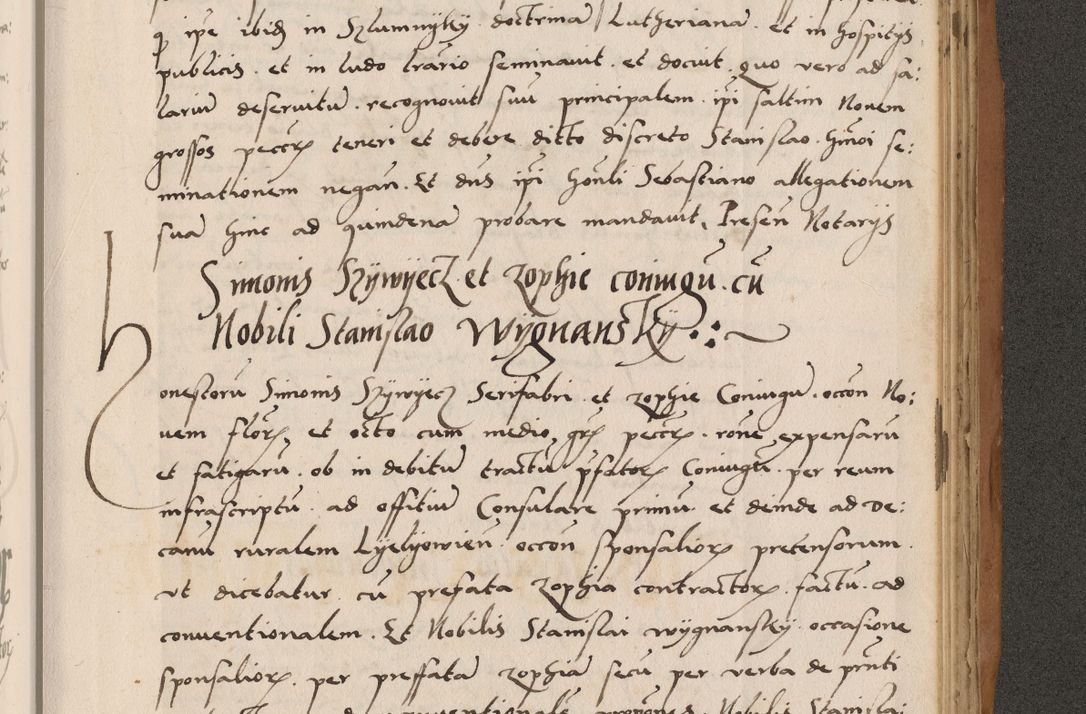 ꝙ ipe ibid in Szlumnyky doctrinā Lutheriana et in hospitijs
publicis . et in ludo lrario seminauit . et docuit . quo vero ad sa:
lariu deseruitu . recognouit suu principalem . ipi saltim Nouem
grossos peccrꝝ teneri et debere dicto discreto Stanislao . hmoi se:
minationem negan . Et dns ipi honli Sebastiano allegationem
sua hinc ad quindena probare mandauit . Presen Notarijs
Simonis Szywyecz . et zophie coniugu . cu
Nobili Stanislao Wygnansky
onestoru Simonis Szywyecz Serifabri . et zophie Coniugu . occon No:
uem florꝝ et octo cum medio grꝝ peccrꝝ . rone expensaru
et fatigaru . ob indebitu tractu pfatorꝝ Coniugu . per reum
infrascriptu . ad offitiu Consulare primu . et deinde ad de:
canu ruralem Lyelyowien . occon sponsaliorꝝ pretensorum .
vt dicebatur . cu prefata zophia contractorꝝ . factu . ad
conuentionalem . Et Nobilis Stanislai wygnansky . occasione
sponsaliorꝝ . per preffata zophia secu per verba de prnti